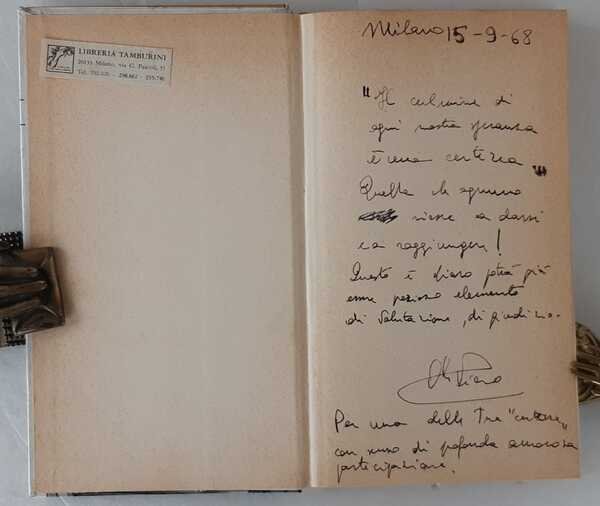 LIBRERIA TAMBURINI
20133 Milano, via G. Pascoli, 55
Milano 15-9-68
"Il culmine di
ogni nostra speranza
è una certezza"
Quella che ognuno
riesce a darsi
e a raggiungere!
Questo è chiaro potrà più
essere prezioso elemento
di valutazione, di giudizio.
Piero
Per una delle Tue "certezze"
con senso di profonda amorosa
partecipazione.